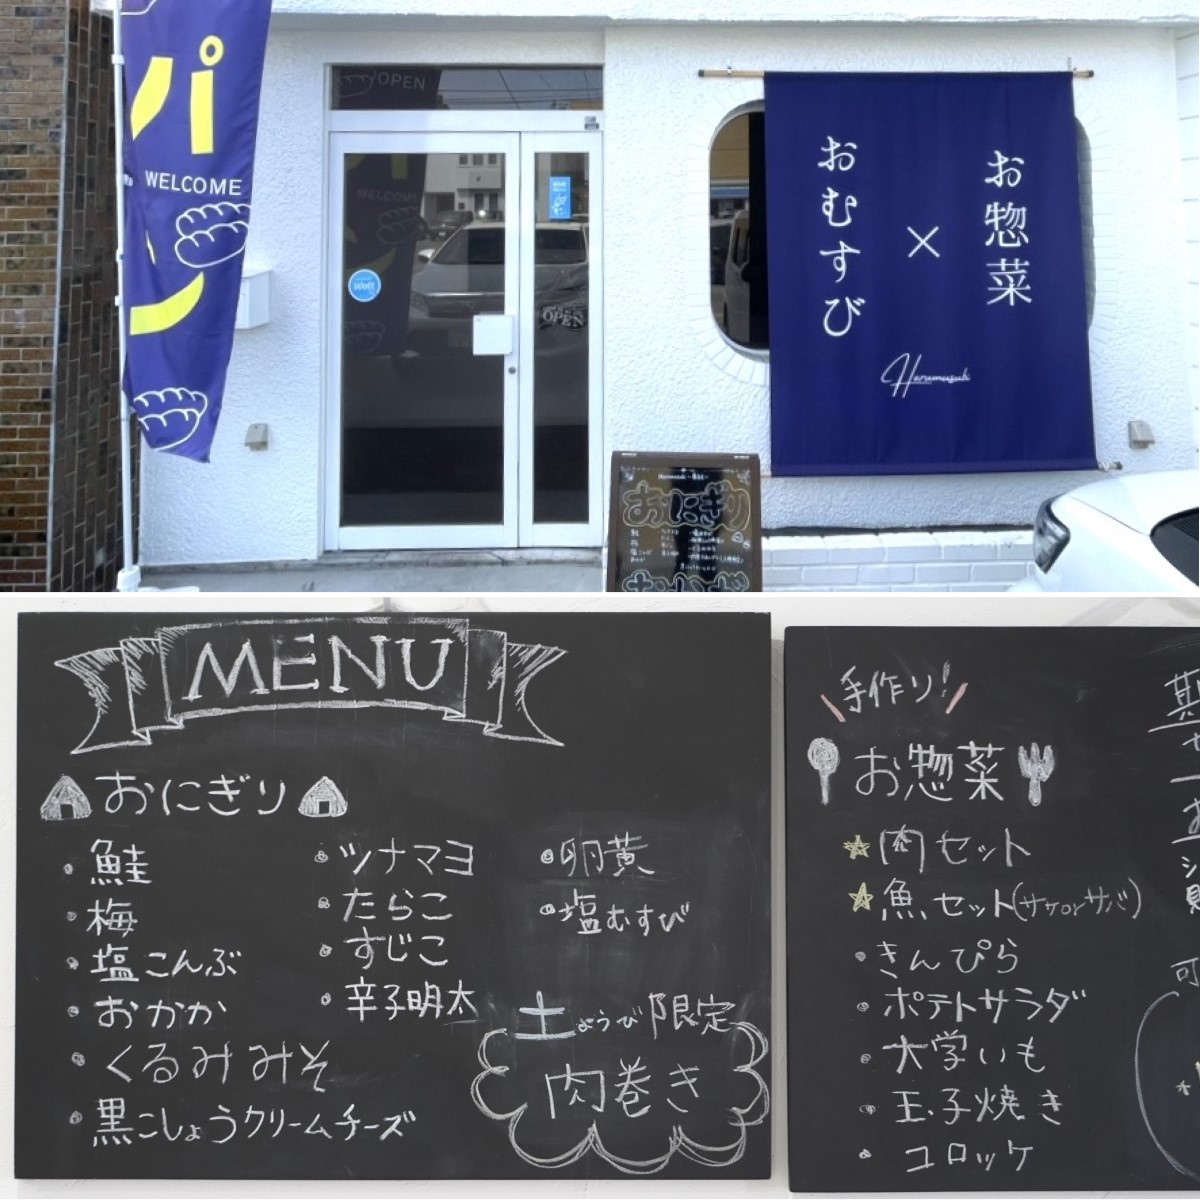 OPEN
WELCOME
OPEN
お惣菜
×
おむすび
Harumusubi
おにぎり
MENU
おにぎり
・鮭
・梅
・塩こんぶ
・おかか
・くるみみそ
・黒こしょうクリームチーズ
・ツナマヨ
・たらこ
・すじこ
・辛子明太
・卵黄
・塩むすび
土ようび限定
肉巻き
手作り!
お惣菜
☆肉セット
☆魚セット(サケorサバ)
・きんぴら
・ポテトサラダ
・大学いも
・玉子焼き
・コロッケ